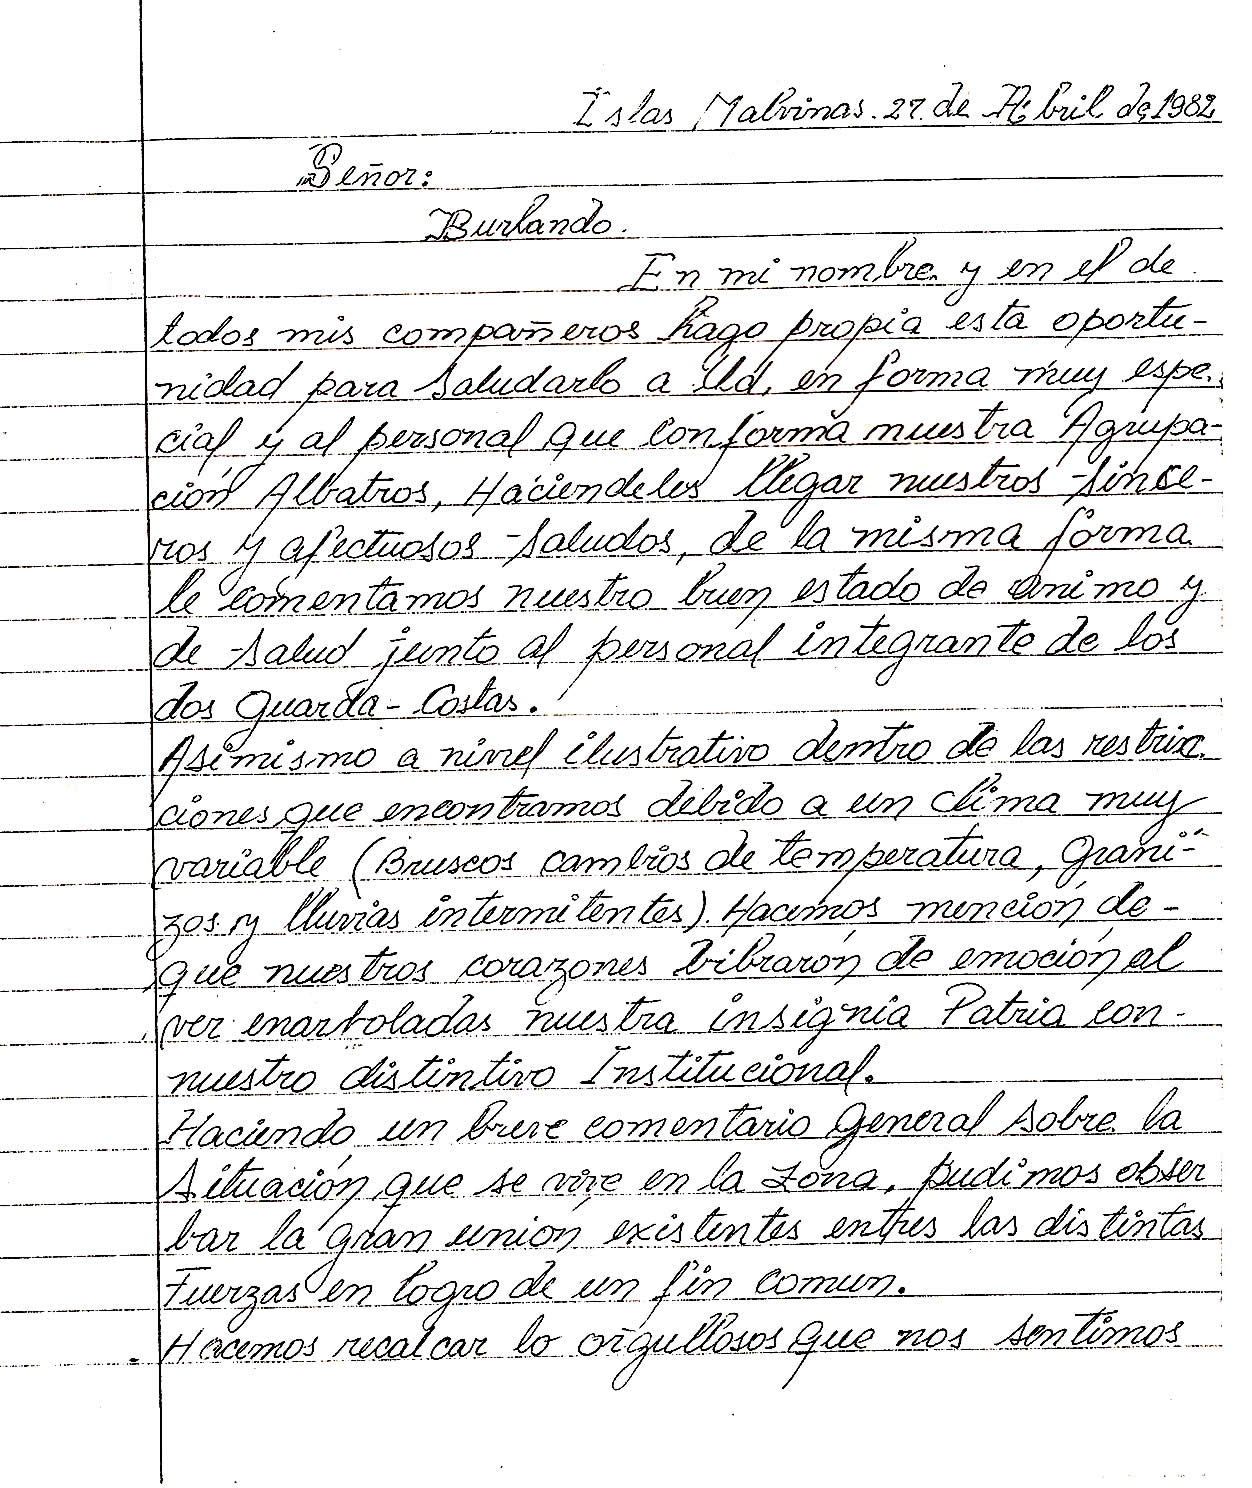 Islas Malvinas. 27 de Abril de 1982
Señor:
Burlando.
En mi nombre y en el de
todos mis compañeros hago propia esta oportu-
nidad para saludarlo a Ud. en forma muy espe-
cial y al personal que conforma nuestra Agrupa-
ción Albatros, Haciendeles llegar nuestros since-
ros y afectuosos saludos, de la misma forma
le comentamos nuestro buen estado de animo y
de salud junto al personal integrante de los
dos Guarda-Costas.
Asimismo a nivel ilustrativo dentro de las restric
ciones que encontramos debido a un clima muy
variable (Bruscos cambios de temperatura, Grani-
zos y lluvias intermitentes). Hacemos mención de-
que nuestros corazones bibraron de emoción al
ver enarboladas nuestra insignia Patria con-
nuestro distintivo Institucional.
Haciendo un breve comentario General sobre la
situación que se vive en la zona, pudimos obser
bar la gran union existentes entres las distintas
Fuerzas en logro de un fin comun.
Hacemos recalcar lo orgullosos que nos sentimos